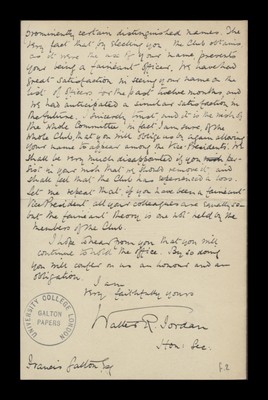 prominently certain distinguished names. The
very fact that by electing you the Club obtains
as it were the use of your name prevents
your being a fainéant officer. We have had
great satisfaction in seeing your name on the
list of officers for the past twelve months and
we had anticipated a similar satisfaction in
the future. I sincerely trust and it is the wish of
the whole Committee, in fact I am sure of the
whole Club, that you will oblige us by again allowing
your name to appear among the Vice-Presidents; we
shall be very much disappointed if you per-
sist in your wish that we should remove it, and
shall feel that the Club has experienced a loss.
Let me repeat that if you have been a fainéant
Vice President all your colleagues are equally so
but the fainéant theory is one not held by the
members of the Club.
I hope to hear from you that you will
continue to hold the office. By so doing
you will confer on us an honour and an
obligation.
I am
Very faithfully yours
Walter R. Jordan
Hon: Sec:
Francis Galton Esq
UNIVERSITY COLLEGE LONDON
GALTON
PAPERS